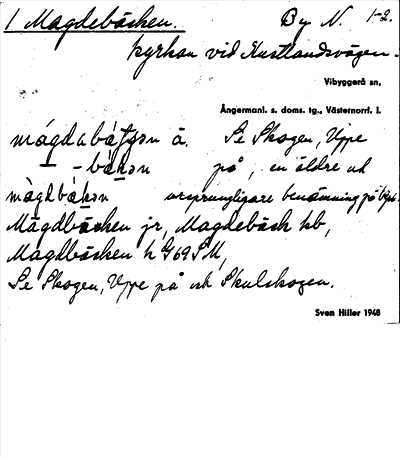 1 Magdebäcken. By N. 1-2.
kyrkan vid Kustlandsvägen.
Vibyggerå sn,
Ångermanl. s. doms. tg., Västernorrl. l.
mágdabát̨s̨ən å. Se Skogen, Uppe
- bákən på, en äldre ock
màgdbákən ursprungligare benämning på
Mägdbäcken jr, Magdebäck kb,
Magdbäcken h G69SM,
Se Skogen, Uppe på och Skulskogen.
Sven Hiller 1948